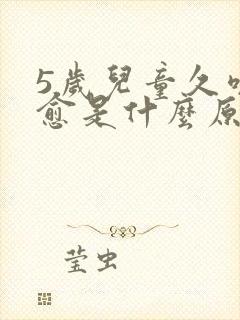 5歲兒童久
愈是什麼原
莹虫